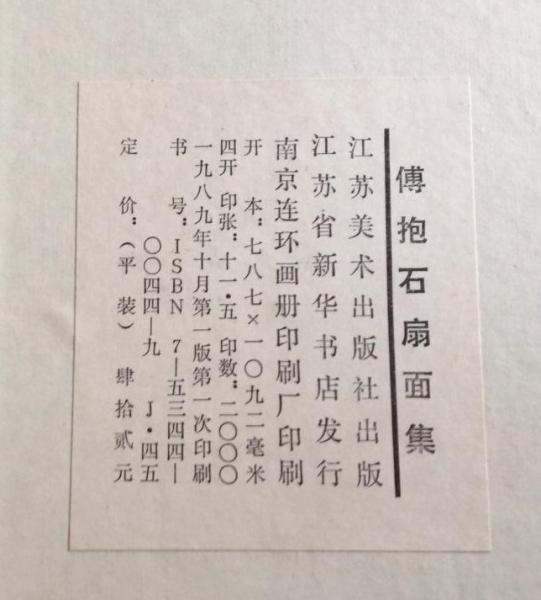 傅抱石扇面集
江苏美术出版社出版
江苏省新华书店发行
南京连环画册印刷厂印刷
开　本：七八七×一〇九二毫米
四开　印张：十一·五　印数：二〇〇〇
一九八九年十月第一版第一次印刷
书　号：ISBN 7—五三四四—
〇〇四四—九　J·四五
定　价：（平装）肆拾贰元